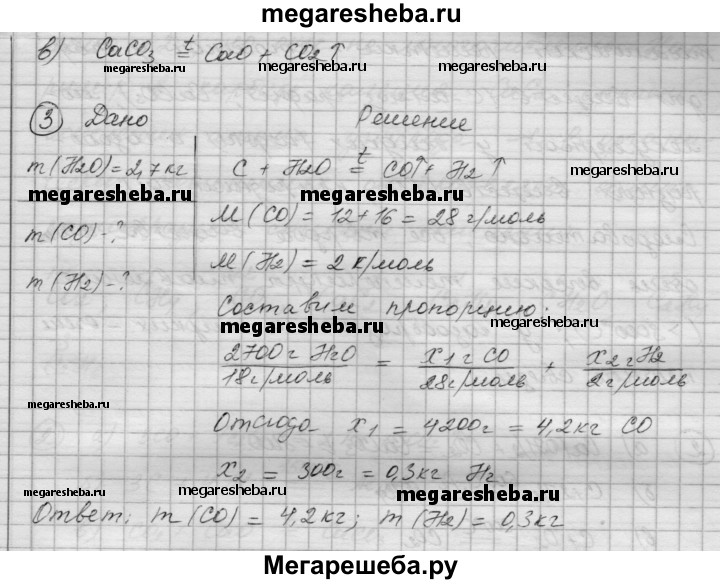 megaresheba.ru
в) CaCO3 t = CaO + CO2↑
megaresheba.ru megaresheba.ru megaresheba.ru
③ Дано Решение
m(H2O)=2,7кг C + H2O t = CO↑ + H2↑
megaresheba.ru
megaresheba.ru megaresheba.ru megaresheba.ru
M(CO) = 12+16 = 28 г/моль
m(CO)-?
M(H2) = 2 г/моль
m(H2)-?
Составим пропорцию:
megaresheba.ru megaresheba.ru
2700г H2O / 18г/моль = x1 г CO / 28г/моль + x2 г H2 / 2г/моль
megaresheba.ru
Отсюда x1 = 4200г = 4,2кг CO
x2 = 300г = 0,3кг H2
megaresheba.ru megaresheba.ru megaresheba.ru
Ответ: m(CO) = 4,2кг; m(H2) = 0,3кг
megaresheba.ru megaresheba.ru
Мегарешеба.ру